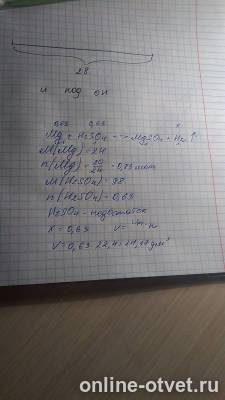 28
и под ги
0,83 0,63 x
Mg + H2SO4 --> MgSO4 + H2 ↑
M(Mg) = 24
n(Mg) = 20/24 = 0,83 моль
M(H2SO4) = 98
n(H2SO4) = 0,63
H2SO4 - недостаток
X = 0,63 V = n
V = 0,63 · 22,4 = 14,11 дм³
online-otvet.ru